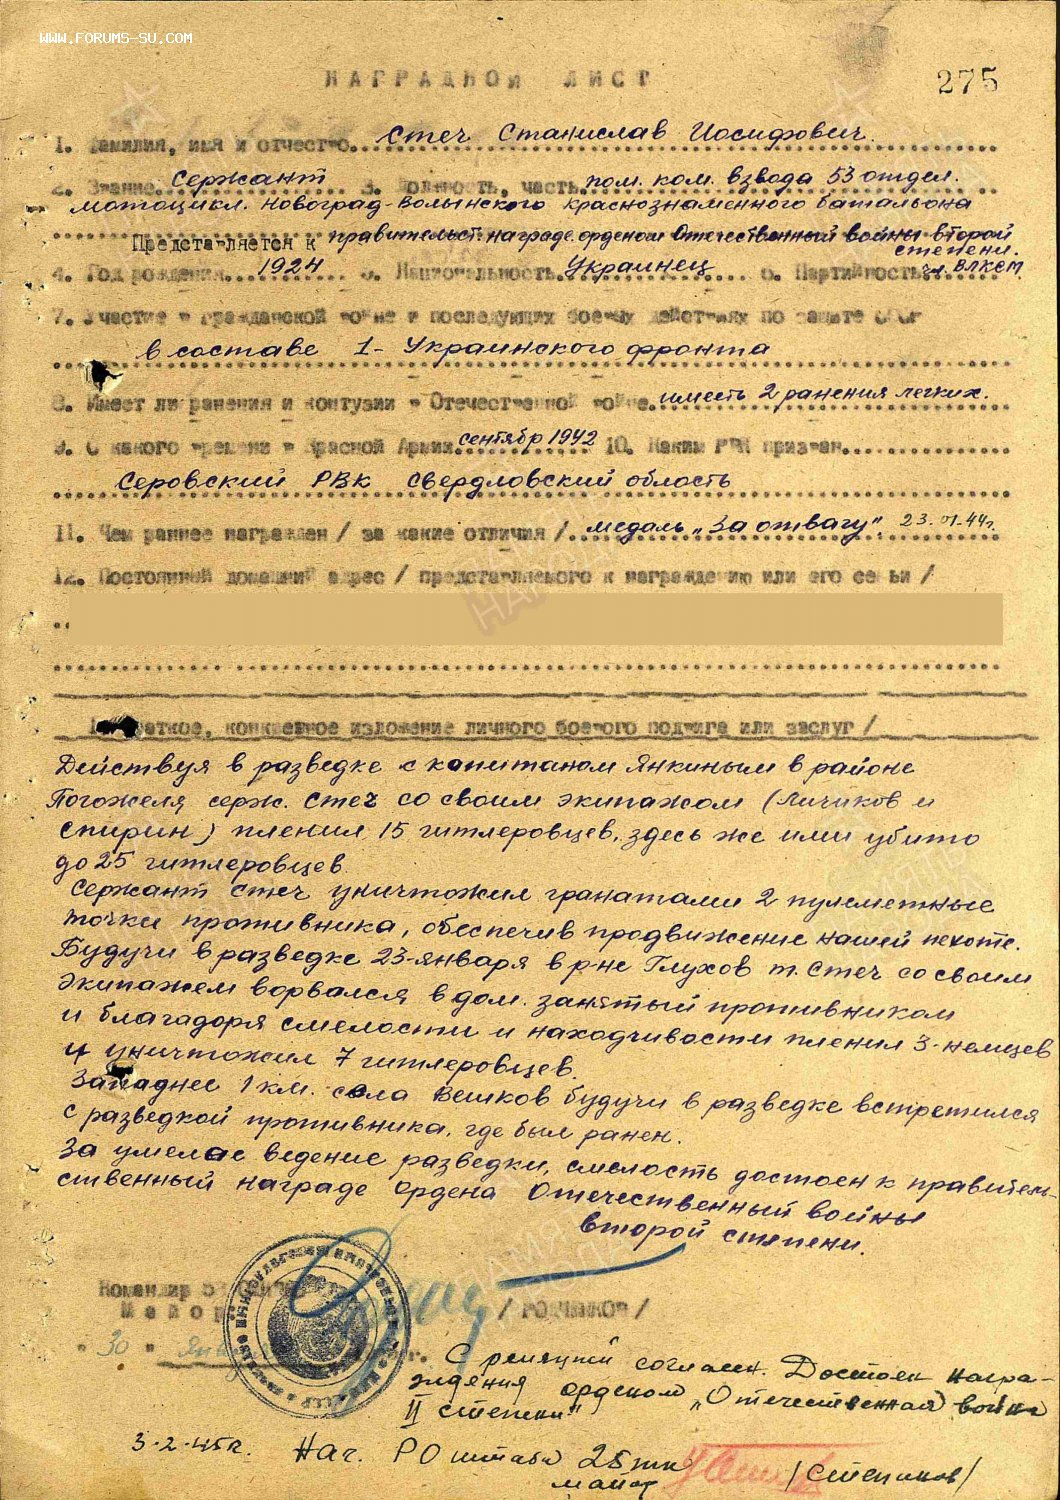 WWW.FORUMS-SU.COM
НАГРАДНОЙ ЛИСТ
275
1. Фамилия, имя и отчество. Стеч Станислав Иосифович.
2. Звание. Сержант 3. Должность, часть. пом. ком. взвода 53 отдел.
мотоцикл. Новоград-Волынского краснознаменного батальона
Представляется к правительст. награде орденом Отечественный войны второй
степени.
4. Год рождения. 1924 5. Национальность. Украинец 6. Партийность. чл. ВЛКСМ
7. Участие в гражданской войне и последующих боевых действиях по защите СССР
в составе 1-Украинского фронта
8. Имеет ли ранения и контузии в Отечественной войне. имеет 2 ранения легких.
9. С какого времени в Красной Армии. сентябр 1942 10. Каким РВК призван.
Серовский РВК Свердловский область
11. Чем ранее награжден / за какие отличия /. медаль „За отвагу". 23.01.44г.
12. Постоянной домашний адрес / представляемого к награждению или его семьи /
Краткое, конкретное изложение личного боевого подвига или заслуг /
Действуя в разведке с капитаном Янкиным в районе
Погожеля серж. Стеч со своим экипажом (Личиков и
Спирин) пленил 15 гитлеровцев, здесь же ими убито
до 25 гитлеровцев.
Сержант Стеч уничтожил гранатами 2 пулеметные
точки противника, обеспечив продвижение нашей пехоте.
Будучи в разведке 23-января в р-не Глухов т. Стеч со своим
экипажем ворвался в дом. занятый противником
и благадоря смелости и находчивости пленил 3-немцев
и уничтожил 7 гитлеровцев.
Западнее 1 км. села Вешков будучи в разведке встретился
с разведкой противника, где был ранен.
За умелае ведение разведки, смелость достоен к правитель-
ственный награде Ордена Отечественный войны
второй степени.
Командир
Майор / РОДЧИКОВ /
" 30 " Января г.
С реляцией согласен. Достоен награ-
ждения орденом „Отечественная война
II степени"
3-2-45г. Нач. РО штаба 25 тк
майор /Степиков/